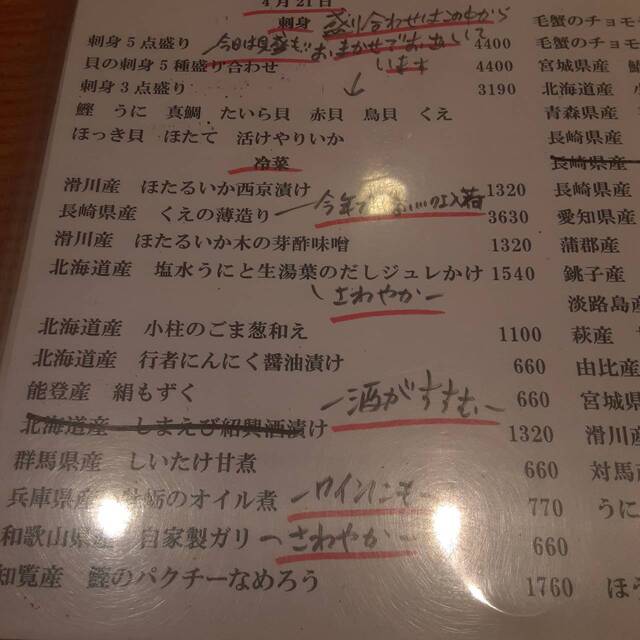 4月21日
刺身
今日は貝盛もおまかせでお出しして
います
刺身5点盛り 4400
貝の刺身5種盛り合わせ 4400
刺身3点盛り 3190
鰹 うに 真鯛 たいら貝 赤貝 鳥貝 くえ
ほっき貝 ほたて 活けやりいか
冷菜
滑川産 ほたるいか西京漬け 1320
長崎県産 くえの薄造り 3630
滑川産 ほたるいか木の芽酢味噌 1320
北海道産 塩水うにと生湯葉のだしジュレかけ 1540
さわやか
北海道産 小柱のごま葱和え 1100
北海道産 行者にんにく醤油漬け 660
能登産 絹もずく 660
酒がすすむ
北海道産 しまえび紹興酒漬け 1320
群馬県産 しいたけ甘煮 660
兵庫県産 牡蛎のオイル煮 ワインにも 770
和歌山県産 自家製ガリ さわやか 660
知覧産 鰹のパクチーなめろう 1760
毛蟹のチョモ
毛蟹のチョモ
宮城県産
北海道産
青森県産
長崎県産
長崎県産
長崎県産
愛知県産
蒲郡産
銚子産
淡路島産
萩産
由比産
宮城県
滑川
対馬
うに
ほ